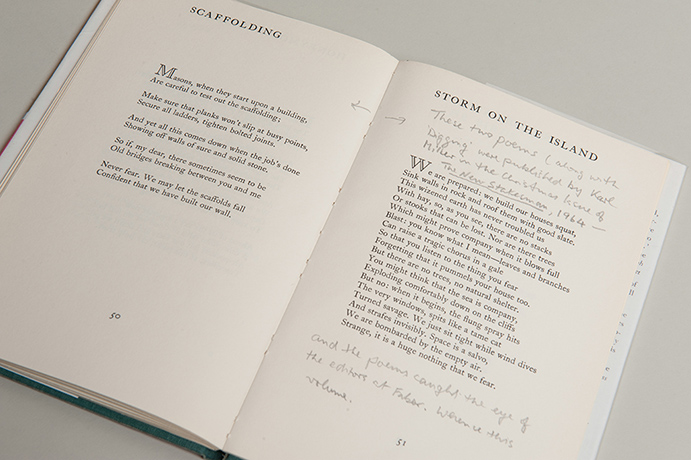 SCAFFOLDING
Masons, when they start upon a building,
Are careful to test out the scaffolding;
Make sure that planks won't slip at busy points,
Secure all ladders, tighten bolted joints.
And yet all this comes down when the job's done
Showing off walls of sure and solid stone.
So if, my dear, there sometimes seem to be
Old bridges breaking between you and me
Never fear. We may let the scaffolds fall
Confident that we have built our wall.
50
STORM ON THE ISLAND
These two poems (along with
'Digging' were published by Karl
Miller in the Christmas issue of
The New Statesman, 1964 —
We are prepared: we build our houses squat,
Sink walls in rock and roof them with good slate.
This wizened earth has never troubled us
With hay, so, as you see, there are no stacks
Or stooks that can be lost. Nor are there trees
Which might prove company when it blows full
Blast: you know what I mean—leaves and branches
Can raise a tragic chorus in a gale
So that you listen to the thing you fear
Forgetting that it pummels your house too.
But there are no trees, no natural shelter.
You might think that the sea is company,
Exploding comfortably down on the cliffs
But no: when it begins, the flung spray hits
The very windows, spits like a tame cat
Turned savage. We just sit tight while wind dives
And strafes invisibly. Space is a salvo,
We are bombarded by the empty air.
Strange, it is a huge nothing that we fear.
and the poems caught the eye of
the editors at Faber. Whence this
volume.
51